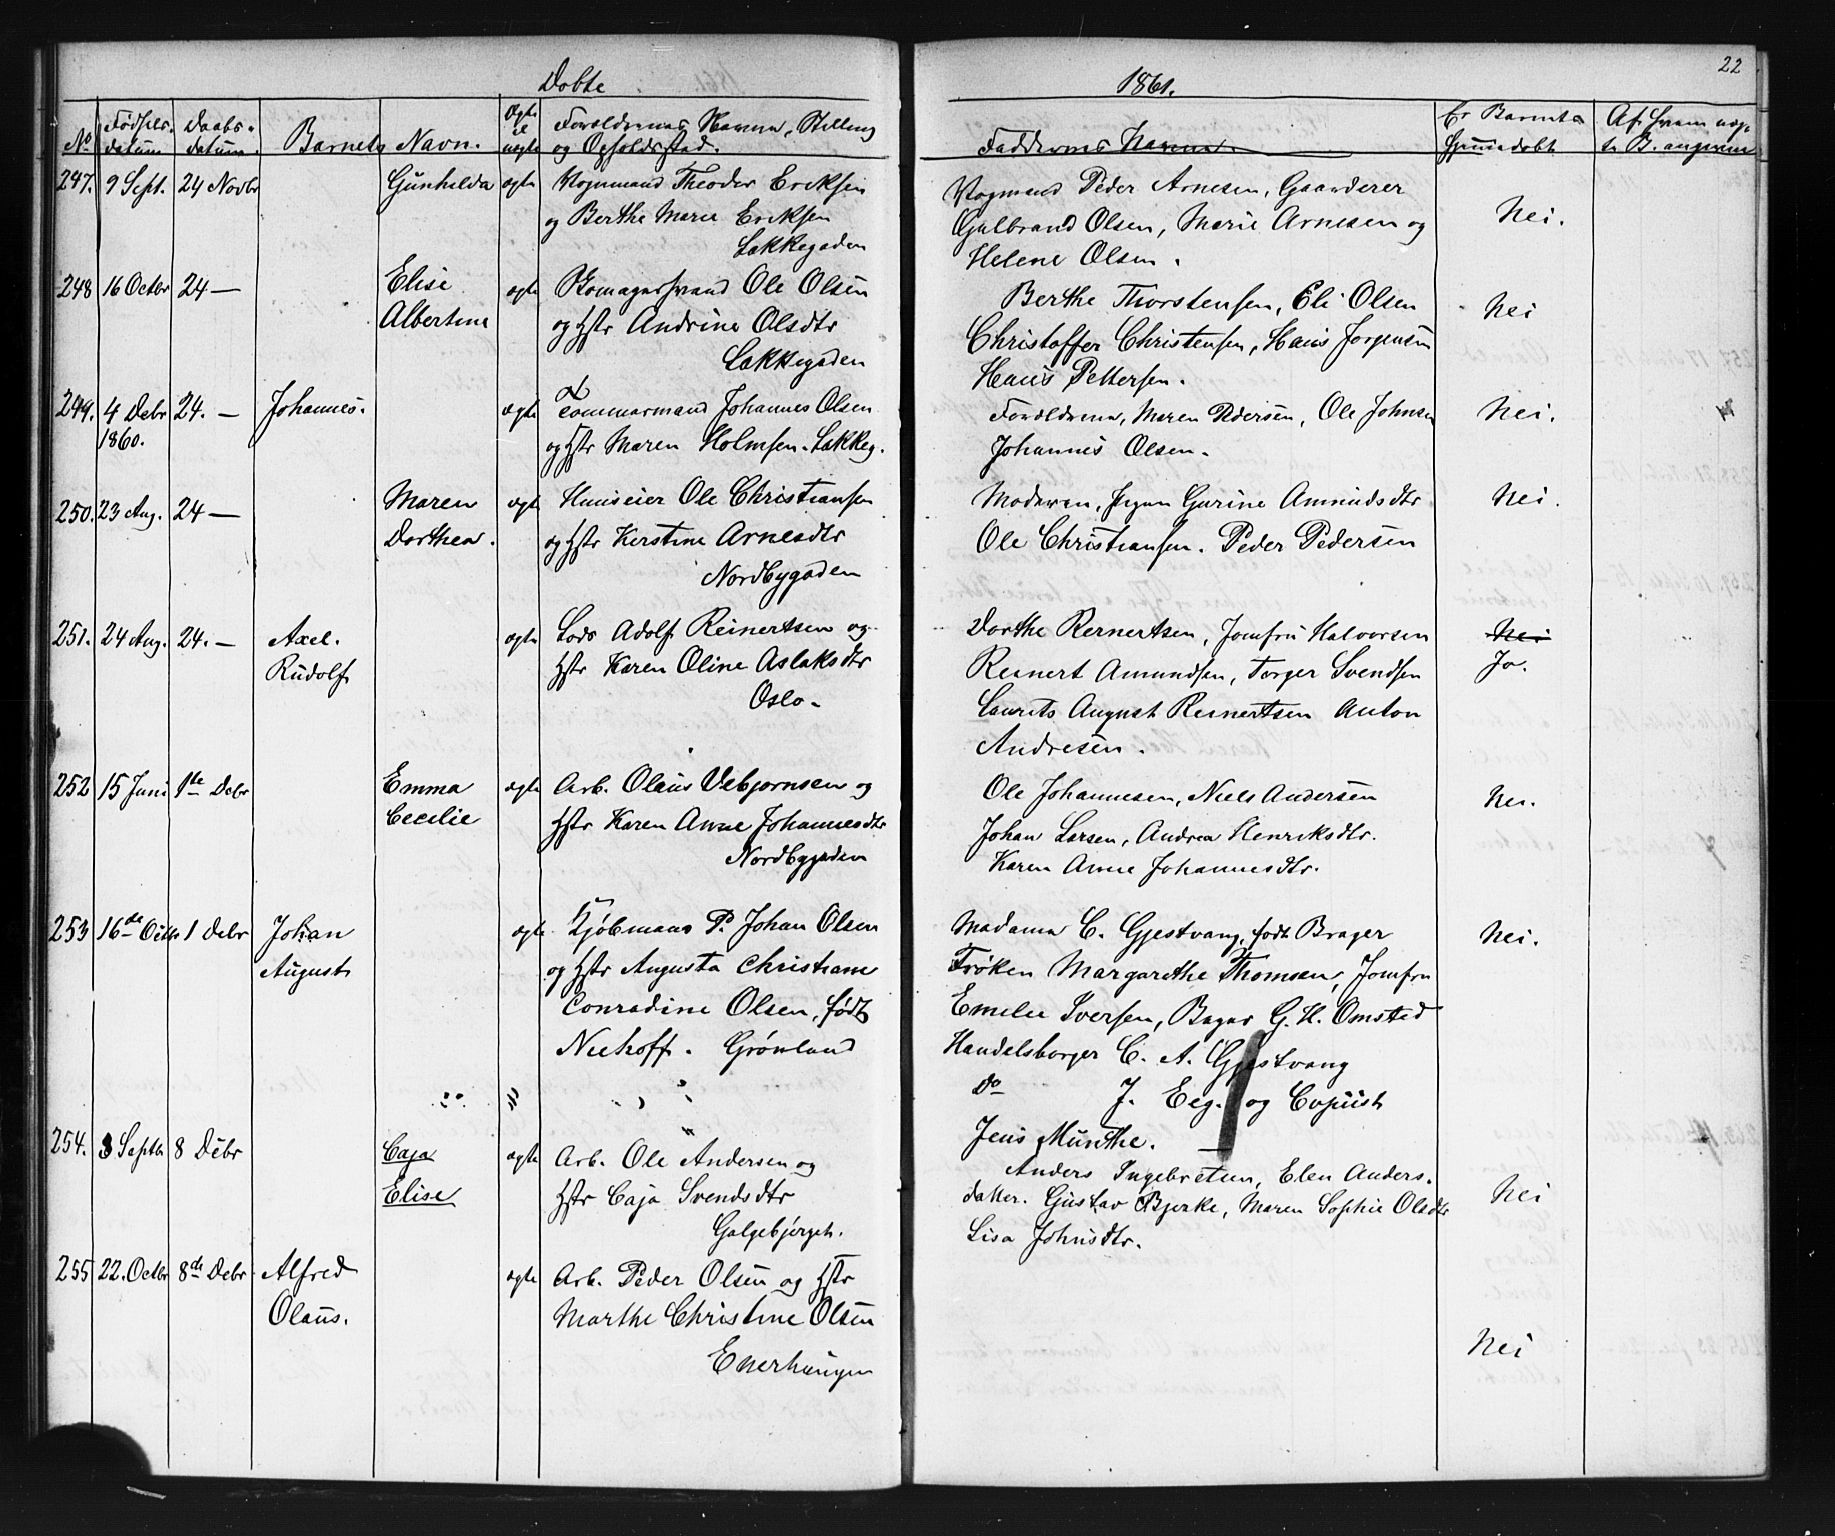 Døbte
1861.
22
No
Fødsels-
datum
Daabs-
datum.
Barnets Navn.
Ægte
el
uægte
Forældrenes Navne, Stilling
og Opholdsstad.
Faddernes Navne.
Er Barnet
hjemmedøbt
247. 9 Sept. 24 Novbr Gunhilda ægte Vognmand Theodor Eriksen
og Berthe Marie Eriksen
Lakkegaden
Vogmand Peder Arnesen, Gaardeier
Gulbrand Olsen, Marie Arnesen og
Helene Olsen.
Nei.
248 16 Octbr 24 — Elise
Albertine
ægte
Ole Olsen
og Hstr Andrine Olsdtr
Lakkegaden
Berthe Thorstensen, Eli Olsen
Christoffer Christensen, Hans Jørgensen
Hans Pettersen.
Nei
249. 4 Debr
1860.
24. — Johannes. ægte Tømmermand Johannes Olsen
og Hstr Maren Holmsen. Lakkeg.
Forældrene, Maren Pedersen, Ole Johnsen
Johannes Olsen.
Nei.
250. 23 Aug. 24 — Maren
Dorthea.
ægte Huuseier Ole Christiansen
og Hstr Kerstine Arnesdtr
Nordbygaden
Moderen, Pigen Gurine Amundsdtr
Ole Christiansen. Peder Pedersen
Nei.
251. 24 Aug. 24. — Axel.
Rudolf
ægte Lods Adolf Reinertsen og
Hstr Karen Oline Aslaksdtr
Oslo.
Dorthe Reinertsen, Jomfru Halvorsen
Reinert Amundsen, Torger Svendsen
Laurits August Reinertsen Anton
Andresen.
Nei
Ja.
252 15 Juni 1ste Debr Emma
Cecilie
ægte Arb. Olaus Vebjørnsen og
Hstr Karen Anne Johannesdtr
Nordbygaden
Ole Johannesen, Niels Andersen
Johan Larsen, Andrea Henriksdtr.
Karen Anne Johannesdtr.
Nei.
253 16de Octbr 1 Debr Johan
August
ægte. Kjøbmand P. Johan Olsen
og Hstr Augusta Christiane
Conradine Olsen, født
Niehoff. Grønland
Madame C. Gjestvang, født Brager
Frøken Margarethe Thomsen, Jomfru
Emelie Iversen, Bager G. H. Omsted
Handelsborger C. A. Gjestvang
Do J. Eeg. og Copiist
Jens Munthe.
Nei.
254. 3 Septbr 8 Debr Caja
Elise
ægte Arb. Ole Andersen og
Hstr Caja Svendsdtr
Galgebjerget.
Anders Ingebretsen, Elen Anders-
datter. Gustav Bjerke, Maren Sophie Olsdtr
Lisa Johnsdtr.
Nei
255 22. Octbr 8de Debr Alfred
Olaus.
ægte Arb. Peder Olsen og Hstr
Marthe Christine Olsen
Enerhaugen
Nei